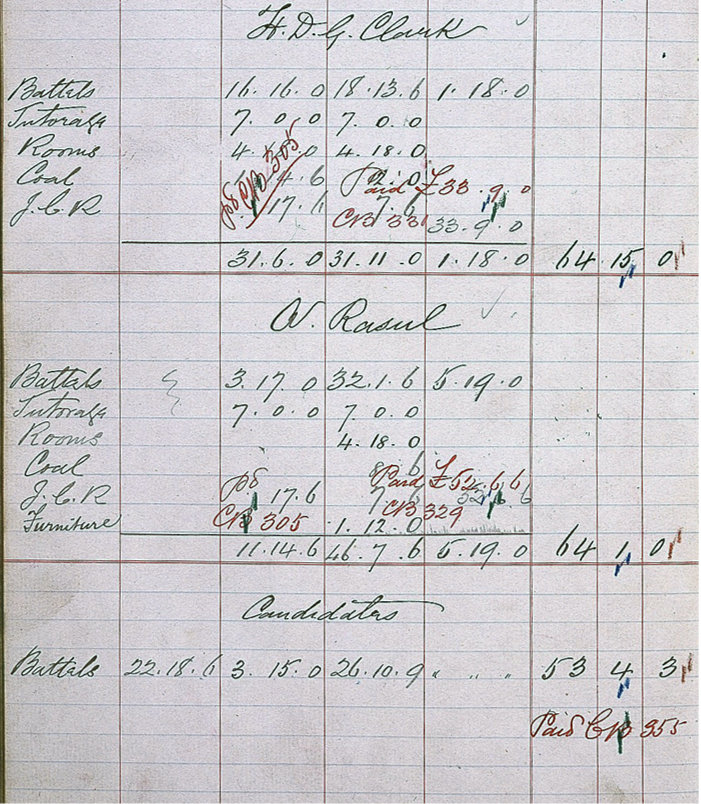 H. D. G. Clark
Battels 16. 16. 0 18. 13. 6 1. 18. 0
Tutorage 7. 0. 0 7. 0. 0
Rooms 4. 0 4. 18. 0
Coal 4. 6 12. 0 Paid £33. 9. 0
J. C. R 17. 6 7. 6
pd CB 305
CB 331 33. 9. 0
31. 6. 0 31. 11. 0 1. 18. 0 64 15 0
W. Rasul
Battels 3. 17. 0 32. 1. 6 5. 19. 0
Tutorage 7. 0. 0 7. 0. 0
Rooms 4. 18. 0
Coal 8. 6 Paid £52. 6. 6
J. C. R pd 17. 6 7 6 52. 6. 6
Furniture CB 305 1. 12. 0 CB 329
11. 14. 6 46. 7. 6 5. 19. 0 64 1 0
Candidates
Battels 22. 18. 6 3. 15. 0 26. 10. 9 " " " 53 4 3
Paid CB 355